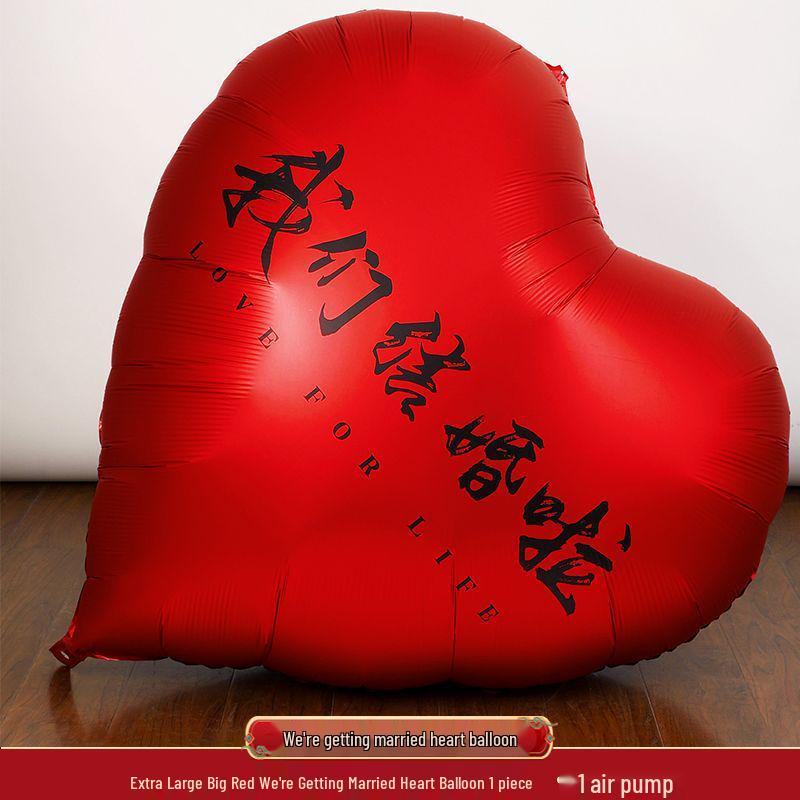 我们结婚啦
LOVE FOR LIFE
We're getting married heart balloon
Extra Large Big Red We're Getting Married Heart Balloon 1 piece
1 air pump